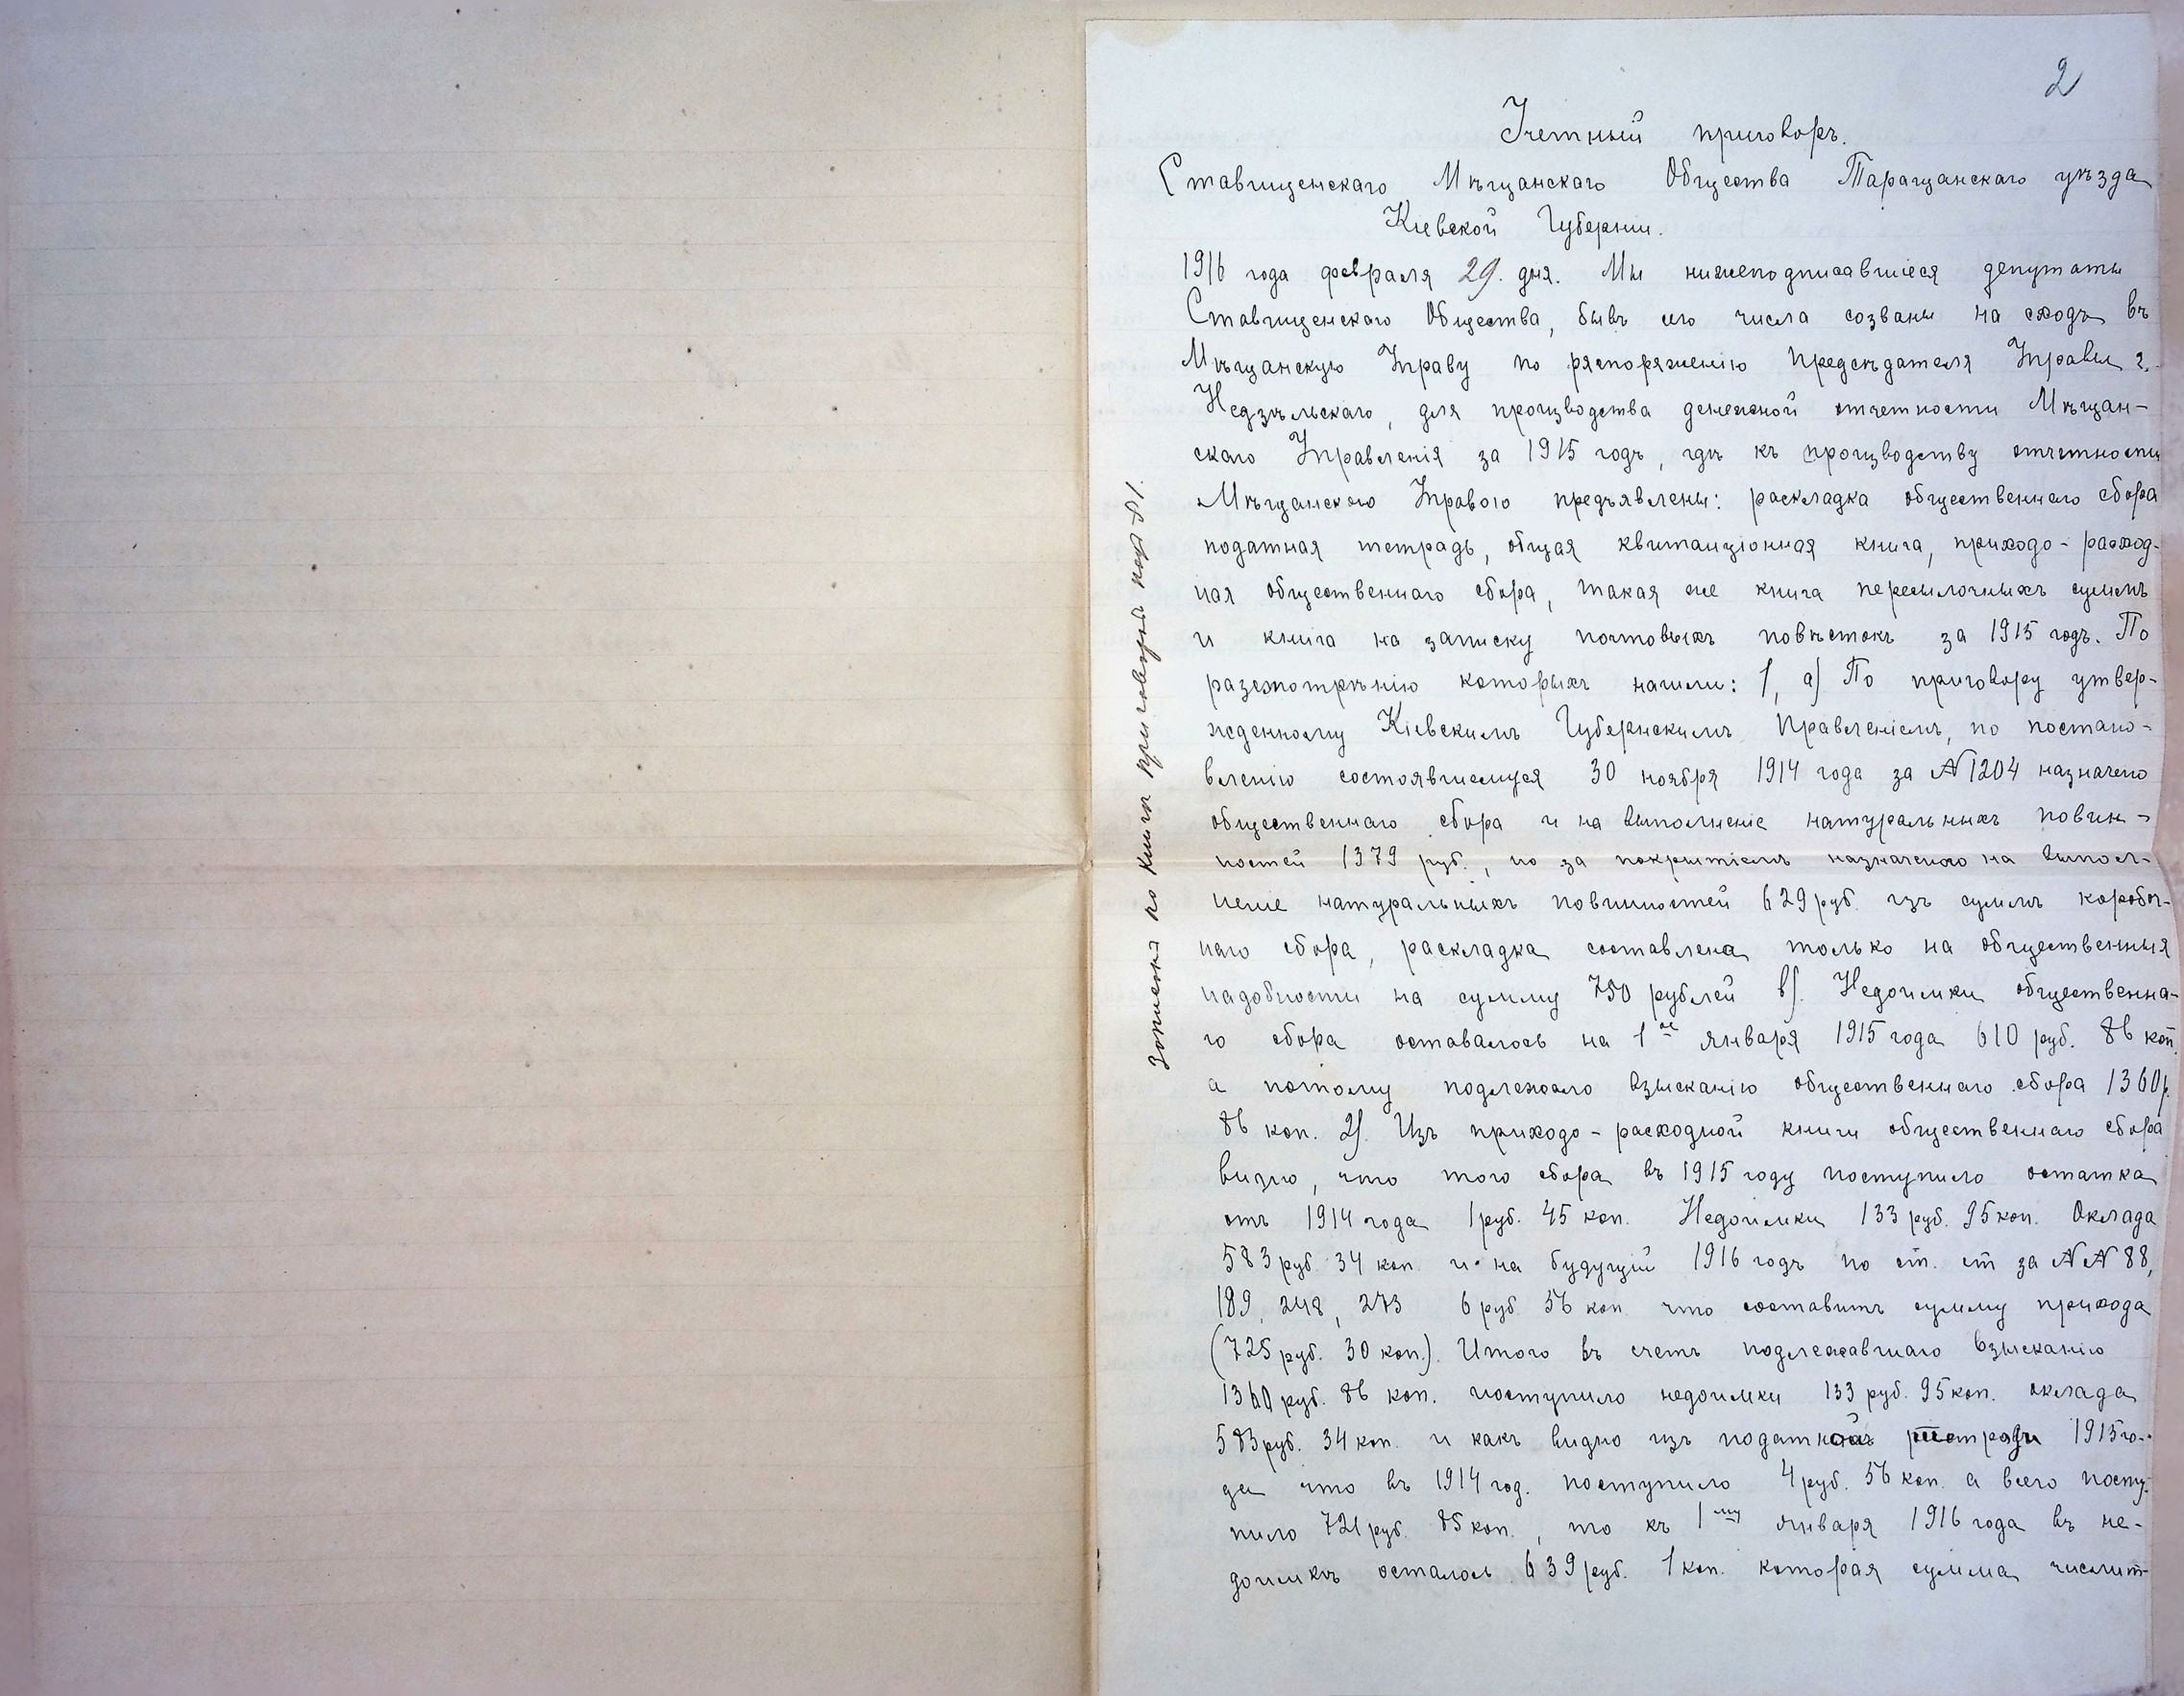 2
Учетный приговоръ.
Ставищенскаго Мѣщанскаго Общества Таращанскаго уѣзда
Кіевской Губерніи.
1916 года февраля 29. дня. Мы нижеподписавшіеся депутаты
Ставищенскаго Общества, бывъ сего числа созваны на сходъ въ
Мѣщанскую Управу по распоряженію Предсѣдателя Управы г.
Недзѣльскаго, для производства денежной отчетности Мѣщан-
скаго Управленія за 1915 годъ, гдѣ къ производству отчетности
Мѣщанскою Управою предъявлены: раскладка общественнаго сбора
податная тетрадь, общая квитанціонная книга, приходо-расход-
ная общественнаго сбора, такая же книга пересылочныхъ суммъ
и книга на записку почтовыхъ повѣстокъ за 1915 годъ. По
разсмотрѣнію которыхъ нашли: 1, а) По приговору утвер-
жденному Кіевскимъ Губернскимъ Правленіемъ, по постано-
вленію состоявшемуся 30 ноября 1914 года за № 1204 назначено
общественнаго сбора и на выполненіе натуральныхъ повин-
ностей 1379 руб., но за покрытіемъ назначеного на выпол-
неніе натуральныхъ повинностей 629 руб. изъ суммъ коробоч-
наго сбора, раскладка составлена только на общественныя
надобности на сумму 750 рублей в). Недоимки общественна-
го сбора оставалось на 1ое января 1915 года 610 руб. 86 коп.
а потому подлежало взысканію общественнаго сбора 1360 р.
86 коп. 2). Изъ приходо-расходной книги общественнаго сбора
видно, что того сбора въ 1915 году поступило остатка
отъ 1914 года 1 руб. 45 коп. Недоимки 133 руб. 95 коп. Оклада
583 руб 34 коп и на будущій 1916 годъ по ст. ст за №№ 88,
189, 248, 273 6 руб 56 коп что составитъ сумму прихода
(725 руб. 30 коп.). Итого въ счетъ подлежавшаго взысканію
1360 руб. 86 коп. поступило недоимки 133 руб. 95 коп. оклада
583 руб. 34 коп. и какъ видно изъ податной тетради 1915 го-
да что въ 1914 год. поступило 4 руб. 56 коп. а всего посту-
пило 721 руб. 85 коп., то къ 1му января 1916 года въ не-
доимкѣ осталось 639 руб. 1 коп. которая сумма числит-
Записанъ по книгѣ приговоровъ подъ № 1.